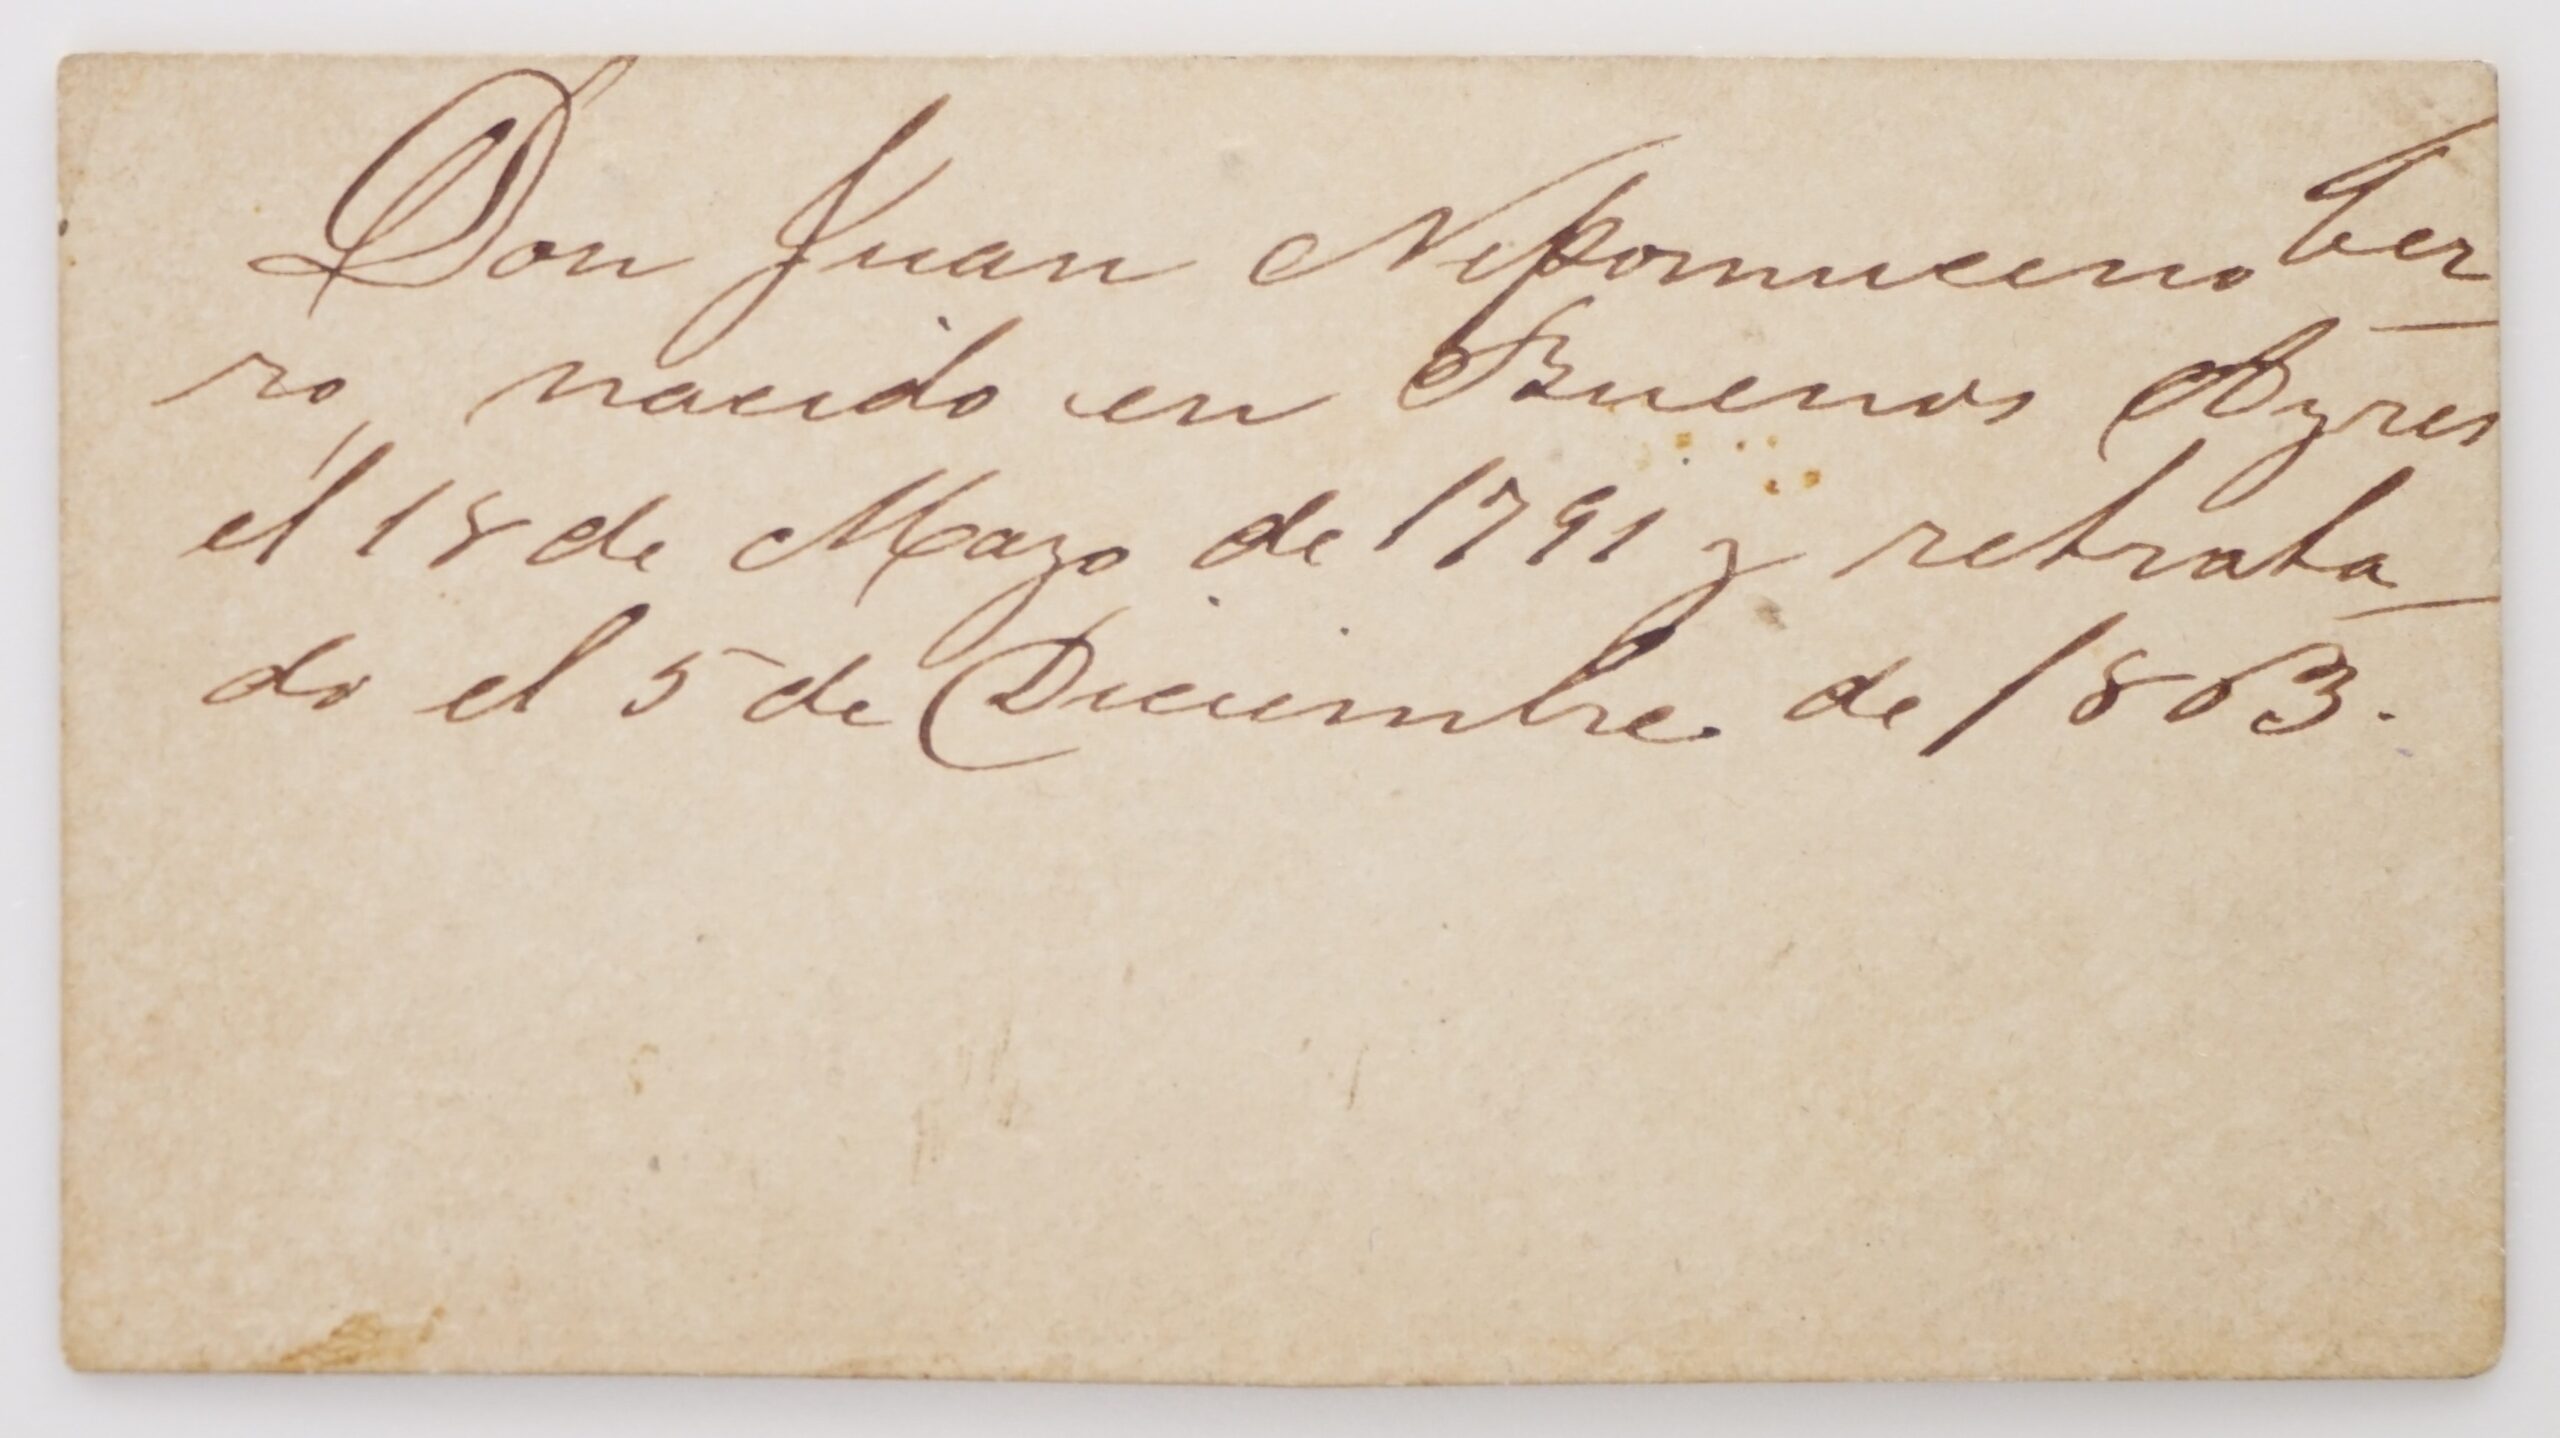 Don Juan Nepomuceno Ter
ro, nacido en Buenos Ayres
el 18 de Mayo de 1791 y retrata
do el 5 de Diciembre de 1863.